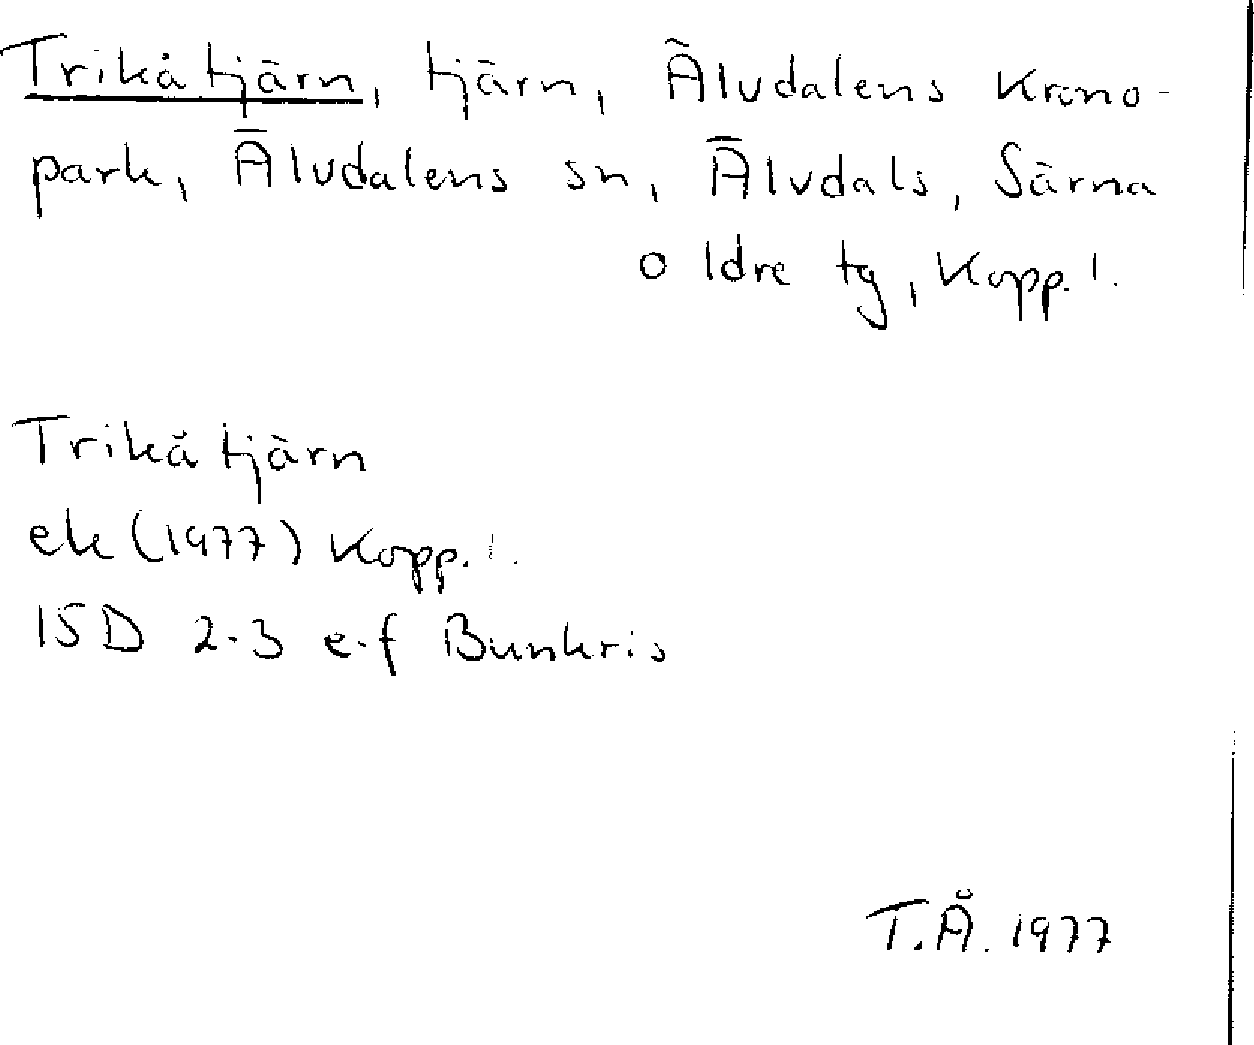 Trikåtjärn, tjärn, Älvdalens Krono-
park, Älvdalens sn, Älvdals, Särna
o Idre tg, Kopp. l.
Trikåtjärn
ek (1977) Kopp. l.
15D 2-3 e-f Bunkris
T.Å. 1977